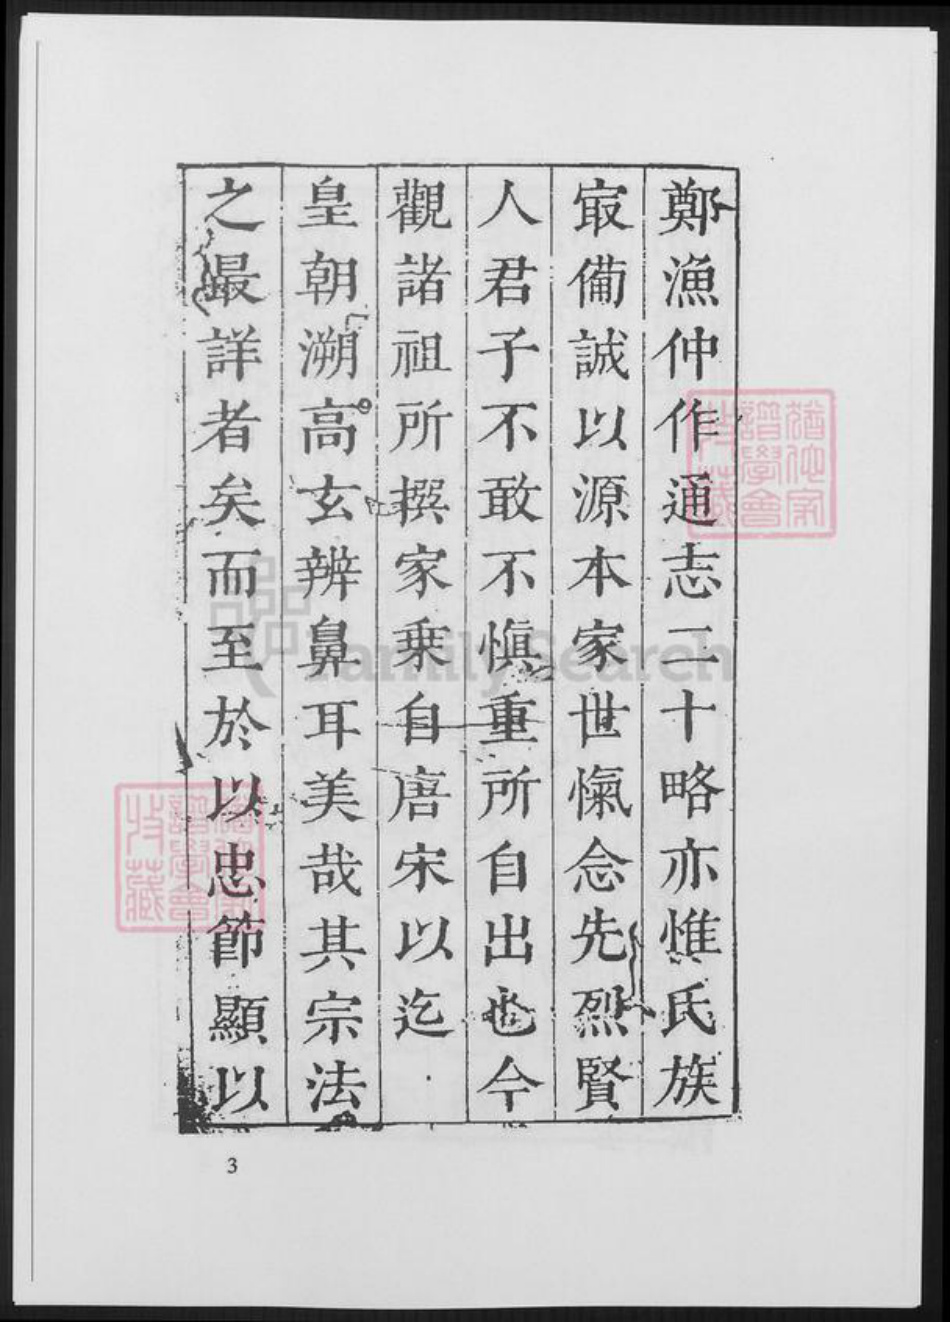 鄭漁仲作通志二十略亦惟氏族
㝡備誠以源本家世愾念先烈賢
人君子不敢不慎重所自出也今
觀諸祖所撰家乗自唐宋以迄
皇朝溯高玄辨鼻耳美哉其宗法
之最詳者矣而至於以忠節顯以
3
FamilySearch